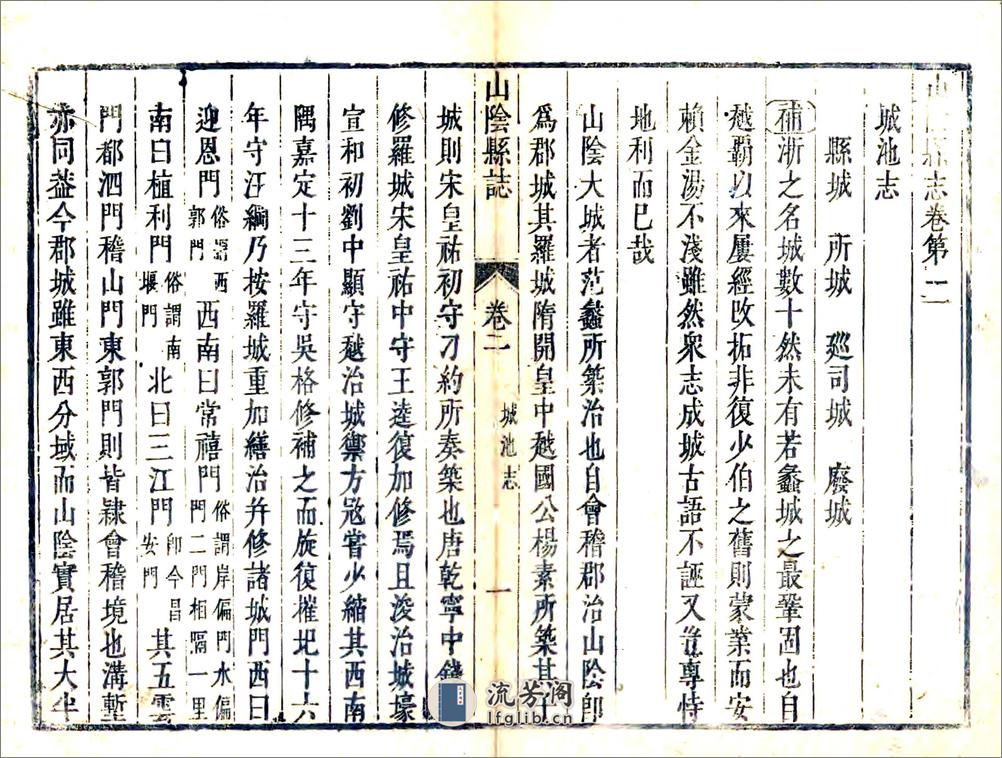 山陰縣志卷第二
城池志
縣城　所城　廵司城　廢城
補浙之名城數十然未有若蠡城之最鞏固也自
越霸以來屢經改拓非復少伯之舊則蒙業而安
賴金湯不淺雖然衆志成城古語不誣又豈專恃
地利而已哉
山陰大城者范蠡所築治也自會稽郡治山陰卽
爲郡城其羅城隋開皇中越國公楊素所築其子
山陰縣誌
卷二
城池志
一
城則宋皇祐初守刁約所奏築也唐乾寧中錢
修羅城宋皇祐中守王逵復加修焉且浚治城壕
宣和初劉中顯守越治城禦方寇嘗少縮其西南
隅嘉定十三年守吳格修補之而旋復摧圯十六
年守汪綱乃按羅城重加繕治幷修諸城門西曰
迎恩門俗謂西郭門西南曰常禧門俗謂岸偏門水偏門二門相隔一里
南曰植利門俗謂南堰門北曰三江門卽今昌安門其五雲
門都泗門稽山門東郭門則皆隷會稽境也溝塹
亦同葢今郡城雖東西分域而山陰實居其大半
流芳阁
lfglib.cn